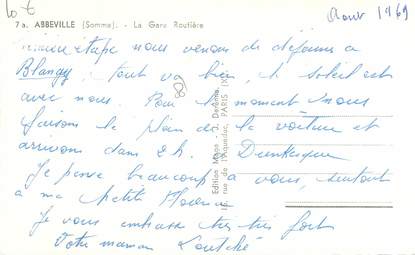 10 €
Aout 1969
7a. ABBEVILLE (Somme). - La Gare Routière
étape nous venons de déjeuner a
Blangy, tout va bien, le soleil est
avec nous. Pour le moment nous
faisons le plein de la voiture et
arrivons dans 2h. Dunkerque
Je pense beaucoup a vous, surtout
a ma petite
Je vous embrasse très très fort
Votre maman
Edition Mage - J. Deramo,
rue de l'Aqueduc, PARIS (X)